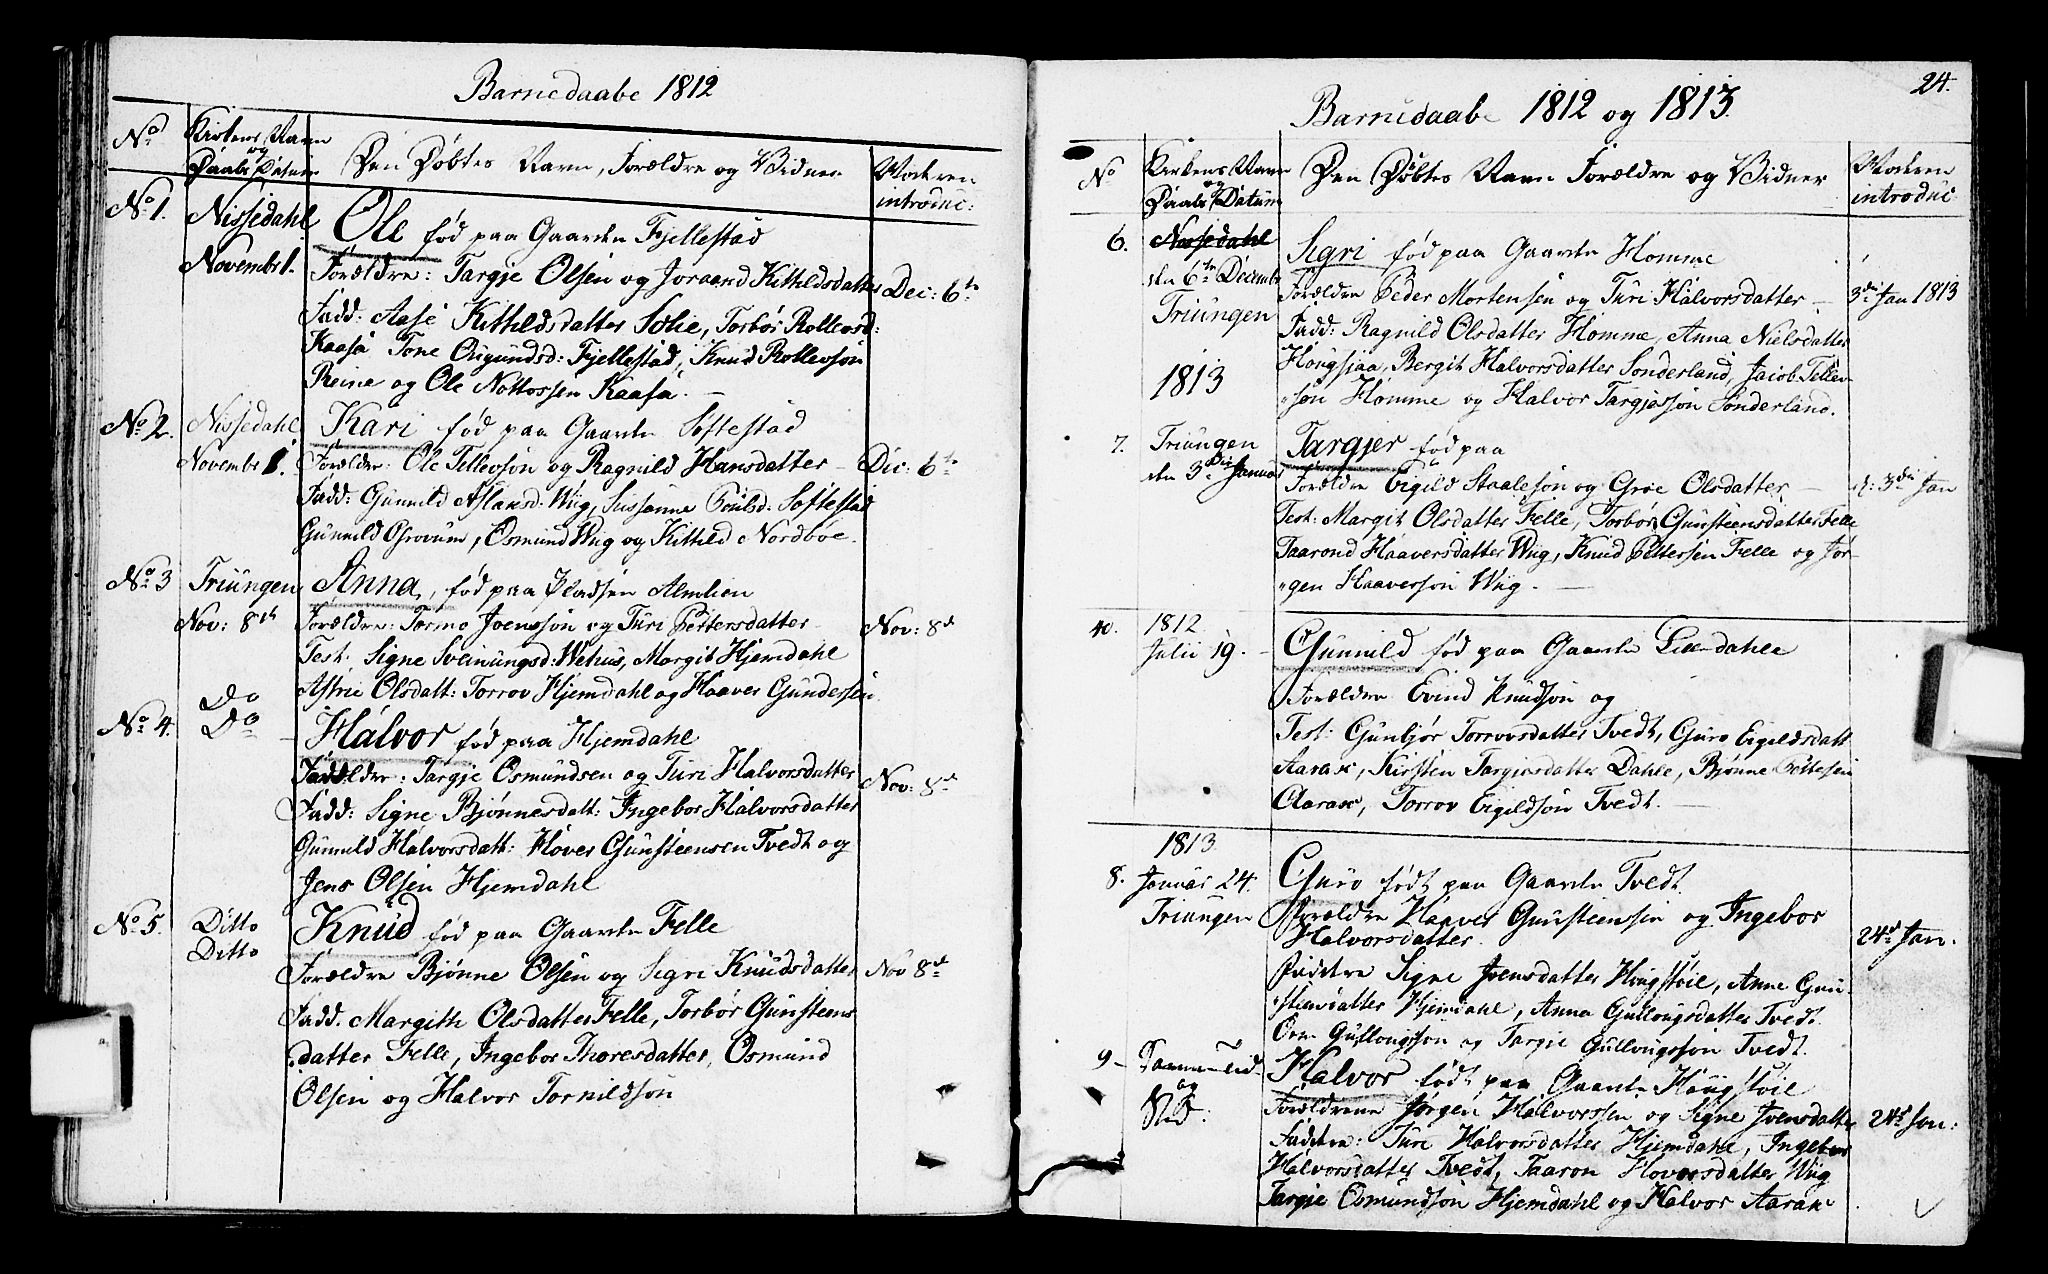 Barnedaabe 1812
No
Kirkens Navn
og
Daabs Datum
Den Døbtes Navn, Forældre og Vidner
Moderen
introduc:
No 1.
Nissedahl
Novembr 1.
Ole fød paa Gaarden Fjellestad
Forældre: Targje Olsen og Joraand Kittildsdatter
Dec: 6te
Fadd: Aase Kittildsdatter Solie, Torbør Rollevsd:
Kaasa Tone Osgundsd: Fjellestad, Knud Rollevson
Reine og Ole Nottossen Kaasa.
No 2.
Nissedahl
Novembr 1.
Kari fød paa Gaarden Softestad
Forældre: Ole Tellevson og Ragnild Hansdatter
Dec: 6te
Fadd: Gunnild Aslansd: Wiig, Sussanne Poulsd: Softestad
Gunnild Grovum, Osmund Wiig og Kittild Nordbøe.
No 3
Triungen
Nov: 8de
Anna, fød paa Pladsen Almlien
Forældre: Tormo Joensson og Turi Pettersdatter
Nov: 8de
Test: Signe Sveinungsd: Wehus, Margit Hjemdahl
Astrie Olsdatt: Torrov Hjemdahl og Haaver Gundersen
No 4.
Do
Do
Halvor fød paa Hjemdahl
Forældre: Targje Osmundsen og Turi Halvorsdatter
Nov: 8de
Fadd: Signe Bjønnesdatt: Ingebor Halvorsdatter
Gunnild Halvorsdatt: Hover Gunsteensen Tvedt og
Jens Olsen Hjemdahl
No 5.
Ditto
Ditto
Knud fød paa Gaarden Felle
Forældre Bjønne Olsen og Segri Knudsdatter
Nov 8de
Fadd. Margith Olsdatter Felle, Torbør Gunsteens
datter Felle, Ingebor Thoresdatter, Osmund
Olsen og Halvor Tornildson
24.
Barnedaabe 1812 og 1813.
No
Kirkens Navn
og
Daabs Datum
Den Døbtes Navn Forældre og Vidner
Moderen
introduc
6.
Nissedahl
den 6te Decembr
Triungen
Segri fød paa Gaarden Homme
Forældre Peder Mortensen og Turi Halvorsdatter
3die Jan 1813
Fadd: Ragnild Olsdatter Homme, Anna Nielsdatter
Hougsjaa, Bergit Halvorsdatter Sonderland, Jacob Tellev
"son Homme og Halvor Targjesson Sonderland.
1813
7.
Triungen
den 3die Januar
Targjer fød paa
Forældre Eigild Staaleson og Groe Olsdatter
d: 3die Jan
Test: Margit Olsdatter Felle, Torbør Gunsteensdatter Felle
Taarond Haaversdatter Wiig, Knud Pettersen Felle og Jør-
"gen Haaverson Wiig.
40.
1812
Julii 19.
Gunnild fød paa Gaarden Dahle
Forældre Evind Knudson og
Test: Gunbjør Torrovsdatter Tvedt, Guro Eigildsdatt
Aarak, Kirsten Targiersdatter Dahle, Bjønne
Aarak, Torrov Eigildson Tvedt.
1813
8.
Januar 24.
Triungen
Guro født paa Gaarden Tvedt.
Forældre Haaver Gunsteensen og Ingebor
Halvorsdatter.
24de Jan.
Faddere Signe Joensdatter Hougstøil, Anne Gun-
"steensdatter Hjemdahl, Anna Gullougsdatter Tvedt
Orm Gullougsson og Targie Gullougsson Tvedt.
9
Samme Tid
og
Sted:
Halvor født paa Gaarden Hougstøil
Forældrene Jørgen Halvorssen og Signe Joensdatter
24de Jan:
Faddere: Turi Halvorsdatter Hjemdahl, Ingebor
Halvorsdatter Tvedt, Taaron Hoversdatter Wiig
Targie Osmundson Hjemdahl og Halvor Aarak